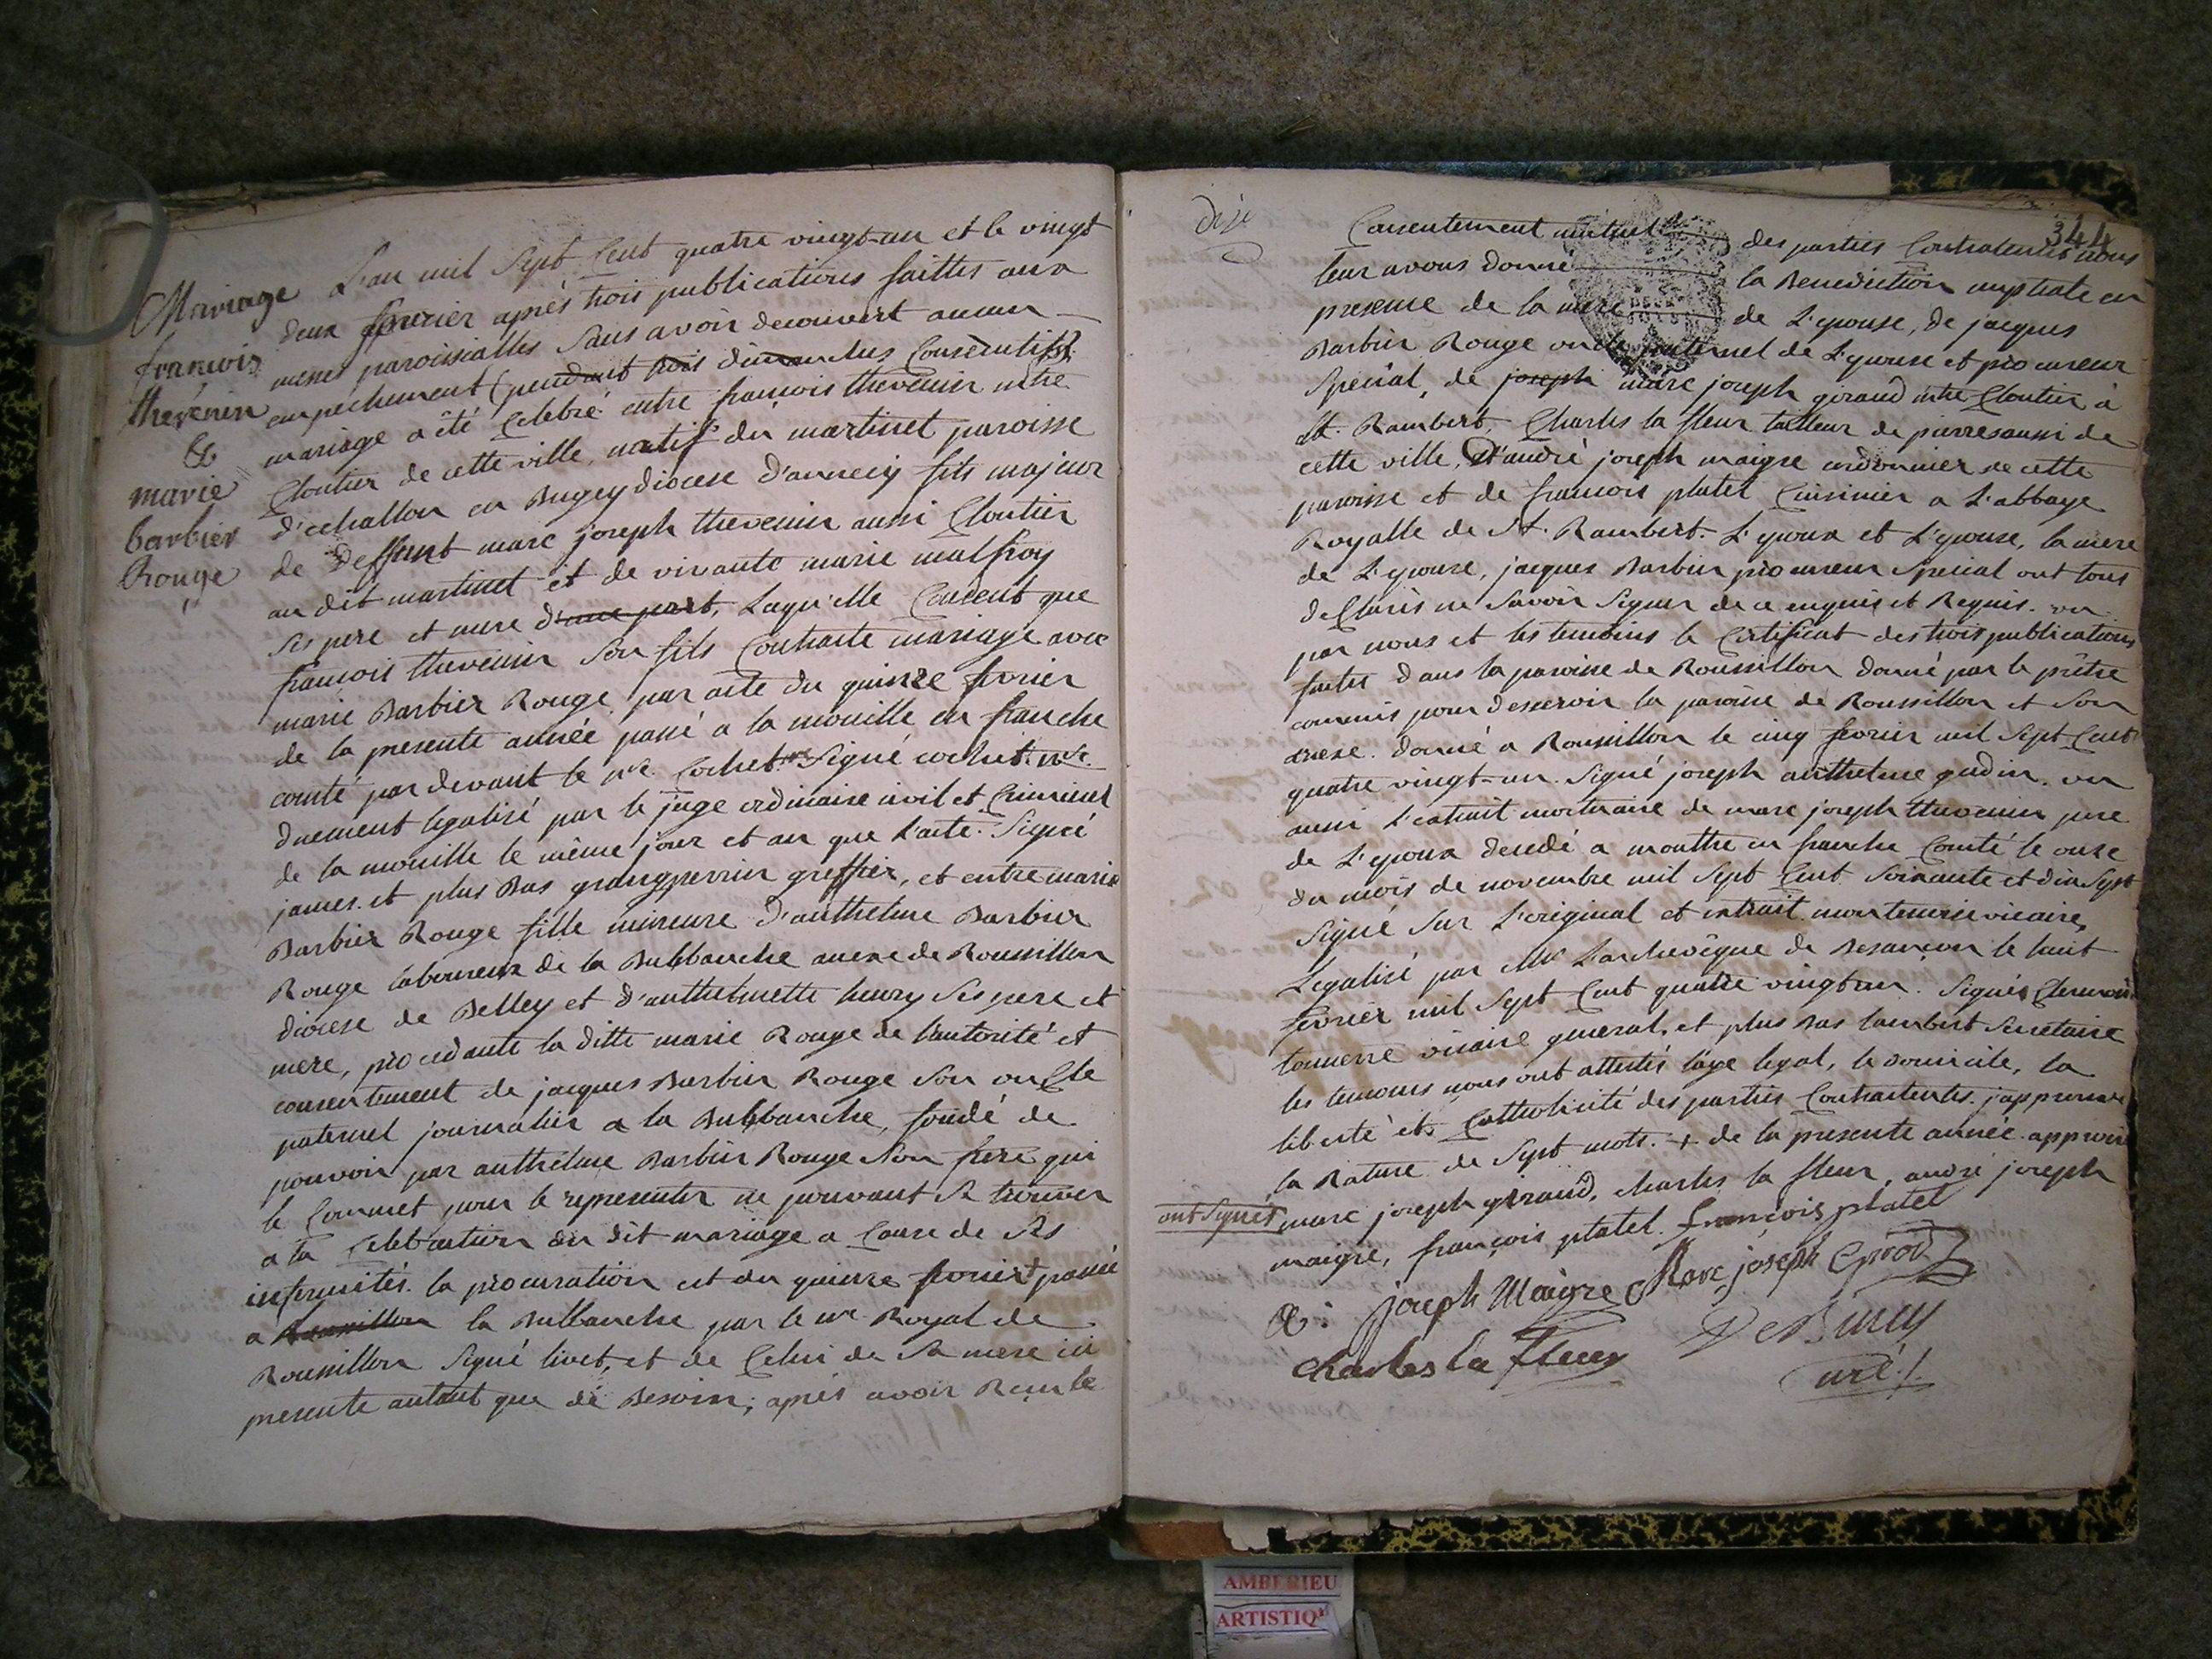 Mariage
françois
thevenin
&
marie
barbier
Rouge
L'an mil Sept Cent quatre vingt-un et le vingt
deux fevrier après trois publications faittes aux
messes paroissialles Sans avoir decouvert aucun
empechement (pendant trois dimanches Consecutifs)
mariage a été Celebré entre françois thevenin mtre
Cloutier de cette ville, natif du martinet paroisse
d'echallon en Bugey diocese d'annecy fils majeur
de Deffunt marc joseph thevenin aussi Cloutier
au dit martinet et de vivante marie malfroy
Ses pere et mere d'une part, Laqu'elle Consent que
françois thevenin Son fils Contracte mariage avec
marie Barbier Rouge par acte du quinze fevrier
de la presente année passé a la mouille en franche
comté par devant le nre Cochet. Signé cochet nre
duement legalisé par le juge ordinaire civil et Criminel
de la mouille le même jour et an que L'acte. Signé
james. et plus Bas grangperrin greffier, et entre marie
Barbier Rouge fille mineure d'anthelme Barbier
Rouge laboureur de la Bulbanche anexe de Roussillon
diocese de Belley et d'anthelmette henry Ses pere et
mere, procedante la ditte marie Rouge de l'autorité et
consentement de jacques Barbier Rouge Son oncle
paternel journalier a la Bulbanche, fondé de
pouvoir par anthelme Barbier Rouge Son frere qui
le Commet pour le representer ne pouvant Se trouver
a la Celebration du dit mariage a Cause de Ses
infirmités. la procuration est du quinze fevrier + passée
a Roussillon la Bulbanche par le nre Royal de
Roussillon Signé livet, et de Celui de Sa mere ici
presente autant que de Besoin; après avoir Reçu le
344
Consentement mutuel des parties Contractantes nous
leur avons donné la Benediction nuptiale en
presence de la mere de L'epouse, de jacques
Barbier Rouge oncle paternel de L'epouse et procureur
Special, de joseph marc joseph giraud mtre Cloutier à
St. Rambert, Charles la fleur tailleur de pierres aussi de
cette ville, D'andré joseph maigre cordonnier de cette
paroisse et de françois platel Cuisinier a L'abbaye
Royalle de St. Rambert. L'epoux et L'epouse, la mere
de L'epouse, jacques Barbier procureur Special ont tous
declarés ne Savoir Signer de ce enquis et Requis. vu
par nous et les temoins le Certificat des trois publications
faites dans la paroisse de Roussillon donné par le prêtre
commis pour desservir la paroisse de Roussillon et Son
anexe. donné a Roussillon le cinq fevrier mil Sept Cent
quatre vingt-un. Signé joseph anthelme gudin. vu
aussi L'extrait mortuaire de marc joseph thevenin pere
de L'epoux decedé a mouthe en franche Comté le onze
du mois de novembre mil Sept Cent Soixante et dix Sept
Signé Sur L'original et extrait montenerie vicaire,
Legalisé par Mr L'archevêque de Besançon le huit
fevrier mil Sept Cent quatre vingt un. Signés Clermont
tonnerre vicaire general, et plus Bas lambert Secretaire
les temoins nous ont attestés l'age legal, le domicile, la
liberté et Catholicité des parties Contractantes. japprouve
la Rature de Sept mots. + de la presente année. approuvé
ont Signés marc joseph giraud, charles la fleur, andré joseph
maigre, françois platel. françois platel
joseph Maigre Marc joseph
charles la fleur
curé
AMBERIEU
ARTISTIQ